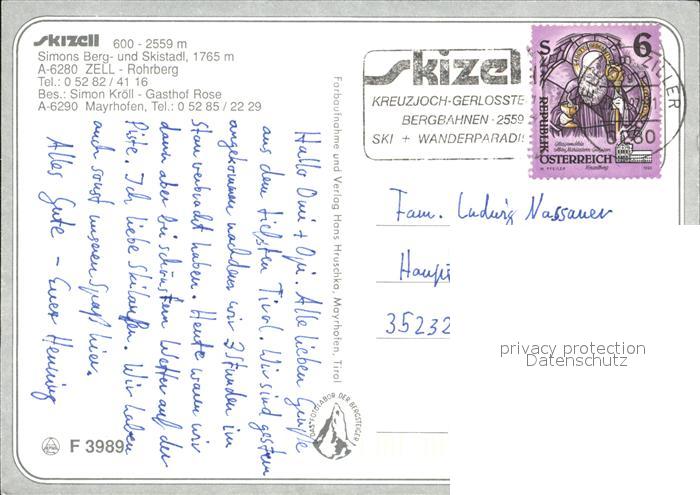 skizell 600 - 2559 m
Simons Berg- und Skistadl, 1765 m
A-6280 ZELL - Rohrberg
Tel.: 0 52 82 / 41 16
Bes.: Simon Kröll - Gasthof Rose
A-6290 Mayrhofen, Tel.: 0 52 85 / 22 29
Hallo Omi + Opi. Alle lieben Grüße
aus dem tiefsten Tirol. Wir sind gestern
angekommen nachdem wir 3 Stunden im
Stau verbracht haben. Heute waren wir
dann aber bei schönstem Wetter auf der
Piste. Ich liebe Skilaufen. Wir haben
auch sonst unseren Spaß hier.
Alles Gute - Euer Henning
F 3989
Farbaufnahme und Verlag Hans Hruschka, Mayrhofen, Tirol
DAS FOTOLABOR DER BERGSTEIGER
skizell
KREUZJOCH-GERLOSSTE
BERGBAHNEN · 2559
SKI + WANDERPARADIS
ZILLER
6280
S 6
REPUBLIK
ÖSTERREICH
Fam. Ludwig Nassauer
Haupts
35232
privacy protection
Datenschutz